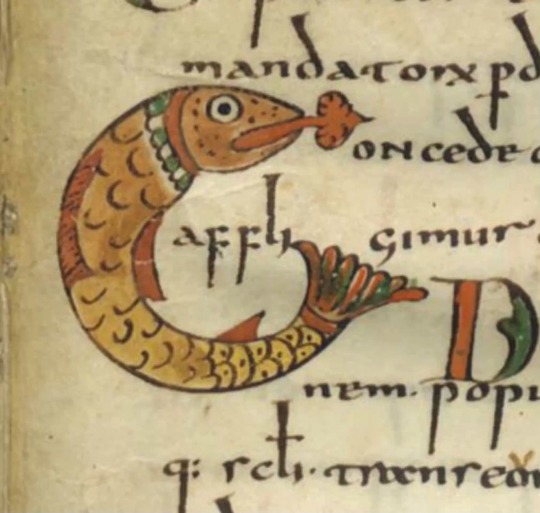 mandatorx pd
Concede
affli gimur
D
nem. popu
q: scli. transeo